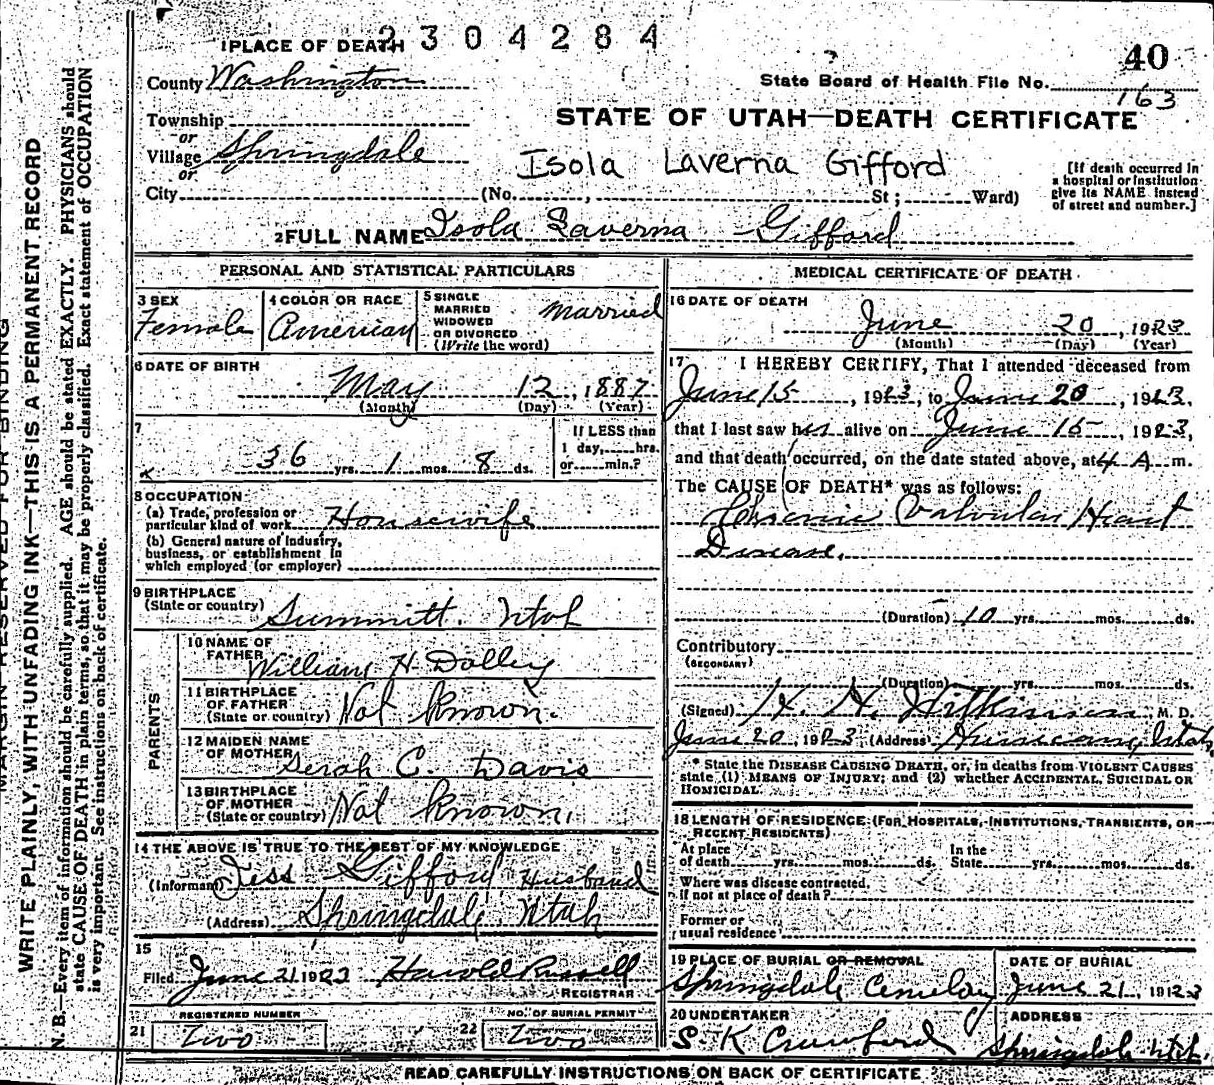 2304284
1 PLACE OF DEATH
40
County Washington
State Board of Health File No. 163
Township
STATE OF UTAH—DEATH CERTIFICATE
or
Village Springdale
or
Isola Laverna Gifford
[If death occurred in
a hospital or institution
give its NAME instead
of street and number.]
City (No. , St; Ward)
2 FULL NAME Isola Laverna Gifford
PERSONAL AND STATISTICAL PARTICULARS
3 SEX
Female
4 COLOR OR RACE
American
5 SINGLE
MARRIED
WIDOWED
OR DIVORCED
(Write the word)
Married
6 DATE OF BIRTH
May 12, 1887
(Month) (Day) (Year)
7
36 yrs. 1 mos. 8 ds.
If LESS than
1 day, hrs.
or min.?
8 OCCUPATION
(a) Trade, profession or
particular kind of work Housewife
(b) General nature of industry,
business, or establishment in
which employed (or employer)
9 BIRTHPLACE
(State or country) Summitt. Utah
PARENTS
10 NAME OF
FATHER William H Dalley
11 BIRTHPLACE
OF FATHER
(State or country) Not Known.
12 MAIDEN NAME
OF MOTHER Serah C. Davis
13 BIRTHPLACE
OF MOTHER
(State or country) Not Known.
14 THE ABOVE IS TRUE TO THE BEST OF MY KNOWLEDGE
(Informant) Jess Gifford Husband
(Address) Springdale Utah
15
Filed June 21 1923 Harold Russell
REGISTRAR
REGISTERED NUMBER
21 Two
NO. OF BURIAL PERMIT
22 Two
MEDICAL CERTIFICATE OF DEATH
16 DATE OF DEATH
June 20, 1923
(Month) (Day) (Year)
17 I HEREBY CERTIFY, That I attended deceased from
June 15, 1923, to June 20, 1923,
that I last saw her alive on June 15, 1923,
and that death occurred, on the date stated above, at 4 A m.
The CAUSE OF DEATH* was as follows:
Chronic Valvular Heart
Disease.
(Duration) 10 yrs. mos. ds.
Contributory
(SECONDARY)
(Duration) yrs. mos. ds.
(Signed) M. D.
June 20, 1923 (Address) Hurricane, Utah
* State the DISEASE CAUSING DEATH, or, in deaths from VIOLENT CAUSES
state (1) MEANS OF INJURY; and (2) whether ACCIDENTAL, SUICIDAL OR
HOMICIDAL.
18 LENGTH OF RESIDENCE (FOR HOSPITALS, INSTITUTIONS, TRANSIENTS, OR
RECENT RESIDENTS)
At place
of death yrs. mos. ds.
In the
State yrs. mos. ds.
Where was disease contracted,
if not at place of death?
Former or
usual residence
19 PLACE OF BURIAL OR REMOVAL
Springdale Cemetary
DATE OF BURIAL
June 21, 1923
20 UNDERTAKER
S. K Crawford
ADDRESS
Springdale Utah.
READ CAREFULLY INSTRUCTIONS ON BACK OF CERTIFICATE
MARGIN RESERVED FOR BINDING
WRITE PLAINLY, WITH UNFADING INK—THIS IS A PERMANENT RECORD
N. B.—Every item of information should be carefully supplied. AGE should be stated EXACTLY. PHYSICIANS should
state CAUSE OF DEATH in plain terms, so that it may be properly classified. Exact statement of OCCUPATION
is very important. See instructions on back of certificate.